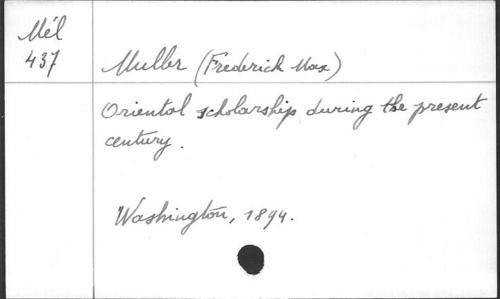 Mél
437
Muller (Frederick Max)
Oriental scholarship during the present
century.
Washington, 1894.